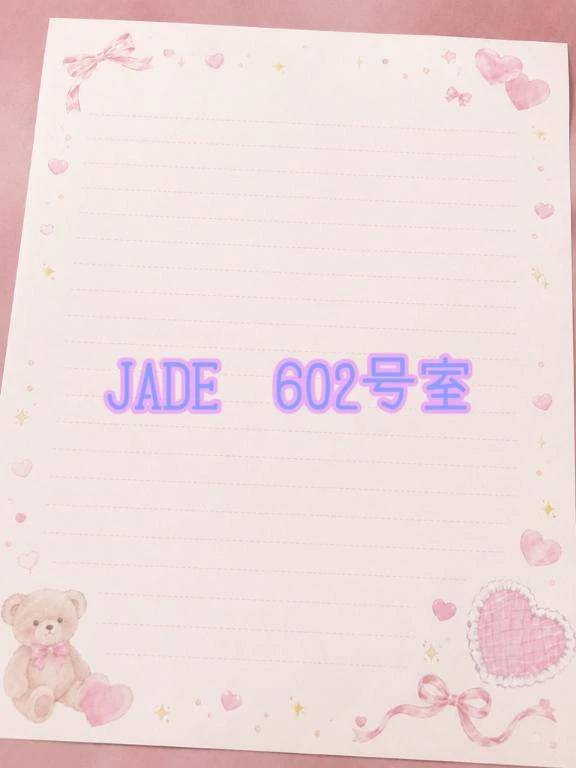 JADE　602号室